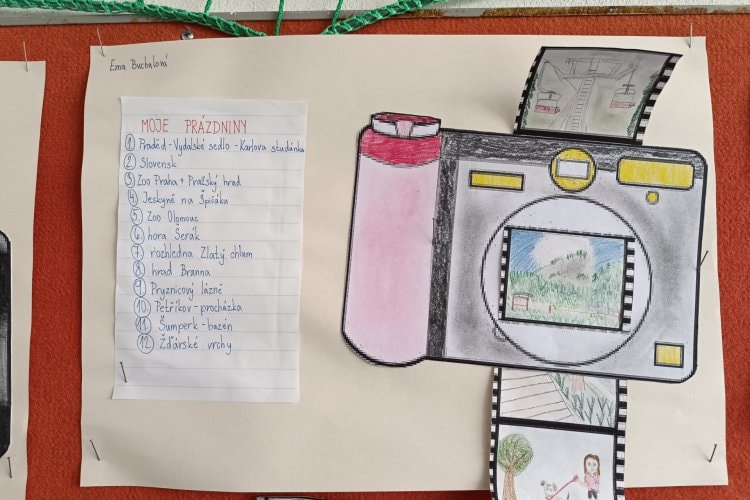 Ema Buchalová
MOJE PRÁZDNINY
1 Praděd-Vydalské sedlo-Karlova studánka
2 Slovensk
3 Zoo Praha+Pražský hrad
4 Jeskyně na Špičáku
5 Zoo Olomouc
6 hora Šerák
7 rozhledna Zlatý chlum
8 hrad Branna
9 Pryznicový lázně
10 Petříkov-procházka
11 Šumperk-bazén
12 Žďárské vrchy